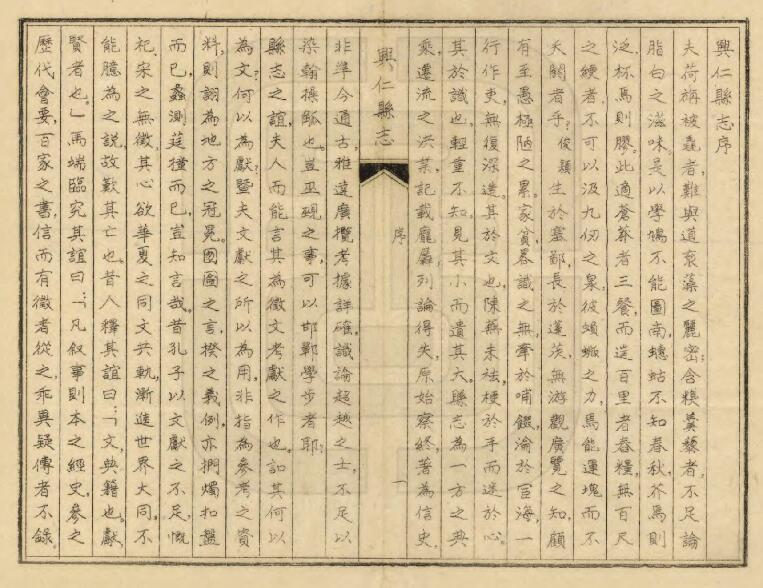 興仁縣志序
夫荷旃被毳者，難與道袞藻之麗密；含糗羹藜者，不足論
脂白之滋味。是以學鳩不能圖南，蟪蛄不知春秋，芥為則
泛，杯焉則膠。此適蒼莽者三餐，而造百里者舂糧，無百尺
之綆者，不可以汲九仞之泉，彼蝜蝂之力，焉能運塊而不
夭閼者乎？俊穎生於塞鄙，長於蓬茨，無游觀廣覽之知，顧
有至愚極陋之累。家貧畧識之無，牽於哺餟，淪於宦海，一
行作吏，無復深造。其於文也，陳蕪未祛，梗於手而迷於心。
其於識也，輕重不知，見其小而遺其大。縣志為一方之典
乘，遷流之洪業，記載龐屪，列論得失，原始察終，著為信史，
興仁縣志
序
一
非準今通古，雅達廣攬，考據詳確，識論超越之士，不足以
染翰操觚也。豈巫硯之事，可以邯鄲學步者耶？
縣志之誼，夫人而能言其為徵文考獻之作也。詎其何以
為文？何以為獻？暨夫文獻之所以為用，非指為參考之資
料，則詡為地方之冠冕。囫圇之言，揆之義例，亦捫燭扣盤
而已，蠡測莛撞而已，豈知言哉。昔孔子以文獻之不足，慨
杞宋之無徵，其心欲華夏之同文共軌，漸進世界大同。不
能臆為之說，故歎其亡也。昔人釋其誼曰：「文，典籍也。獻，
賢者也。」馬端臨究其誼曰：「凡敘事則本之經史，參之
歷代會要，百家之書，信而有徵者從之，乖異疑傳者不錄。